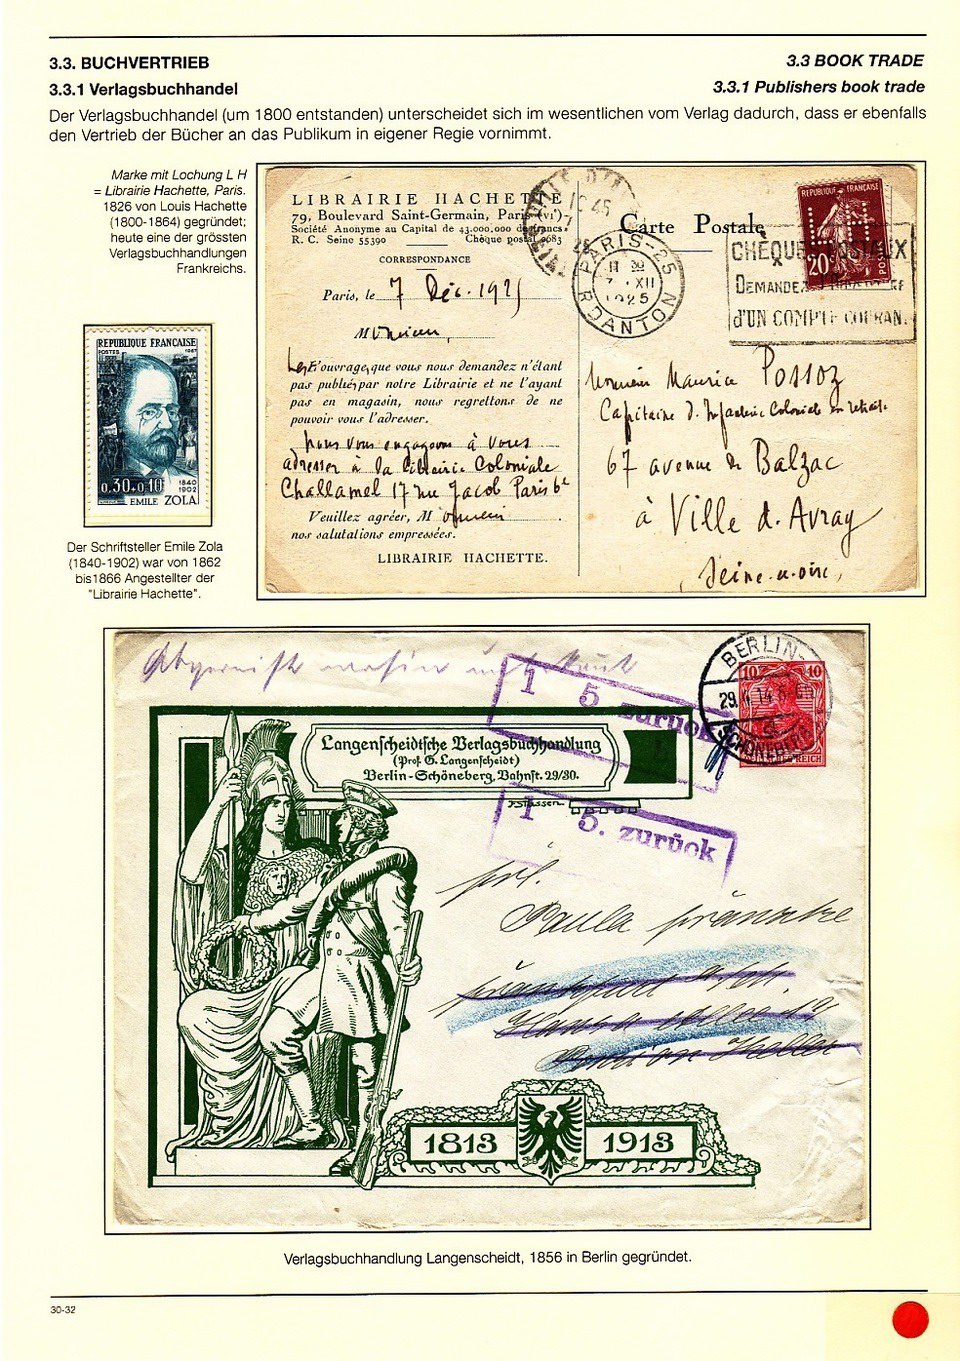 3.3. BUCHVERTRIEB
3.3 BOOK TRADE
3.3.1 Verlagsbuchhandel
3.3.1 Publishers book trade
Der Verlagsbuchhandel (um 1800 entstanden) unterscheidet sich im wesentlichen vom Verlag dadurch, dass er ebenfalls
den Vertrieb der Bücher an das Publikum in eigener Regie vornimmt.
Marke mit Lochung L H
= Librairie Hachette, Paris.
1826 von Louis Hachette
(1800-1864) gegründet;
heute eine der grössten
Verlagsbuchhandlungen
Frankreichs.
LIBRAIRIE HACHETTE
79, Boulevard Saint-Germain, Paris (vi)
Société Anonyme au Capital de 43.000.000 de francs.
R. C. Seine 55390
Chèque postal
CORRESPONDANCE
Paris, le 7 Déc. 1925
Monsieur,
L'ouvrage, que vous nous demandez n'étant
pas publié par notre Librairie et ne l'ayant
pas en magasin, nous regrettons de ne
pouvoir vous l'adresser.
nous vous engageons à vous
adresser à la librairie Coloniale
Challamel 17 rue Jacob Paris 6e
Veuillez agréer, Monsieur
nos salutations empressées.
LIBRAIRIE HACHETTE.
Carte Postale
REPUBLIQUE FRANÇAISE
L H
20c
POSTES
PARIS-25
XII
1925
R. DANTON
CHÈQUES POSTAUX
DEMANDEZ
d'UN COMPTE COURANT
Monsieur Maurice Possoz
Capitaine d'Infanterie Coloniale en retraite
67 avenue de Balzac
à Ville d'Avray
Seine-et-Oise
REPUBLIQUE FRANÇAISE
POSTES
1967
0,30+0,10
1840
1902
EMILE ZOLA
Der Schriftsteller Emile Zola
(1840-1902) war von 1862
bis1866 Angestellter der
"Librairie Hachette".
1 5. zurück
BERLIN-
29.4.14
SCHÖNEBERG
10 10
Langenscheidtsche Verlagsbuchhandlung
(Prof. G. Langenscheidt)
Berlin-Schöneberg, Bahnst. 29/30.
F. Stassen
1 5. zurück
Frl.
Paula
1813 1913
Verlagsbuchhandlung Langenscheidt, 1856 in Berlin gegründet.
30-32